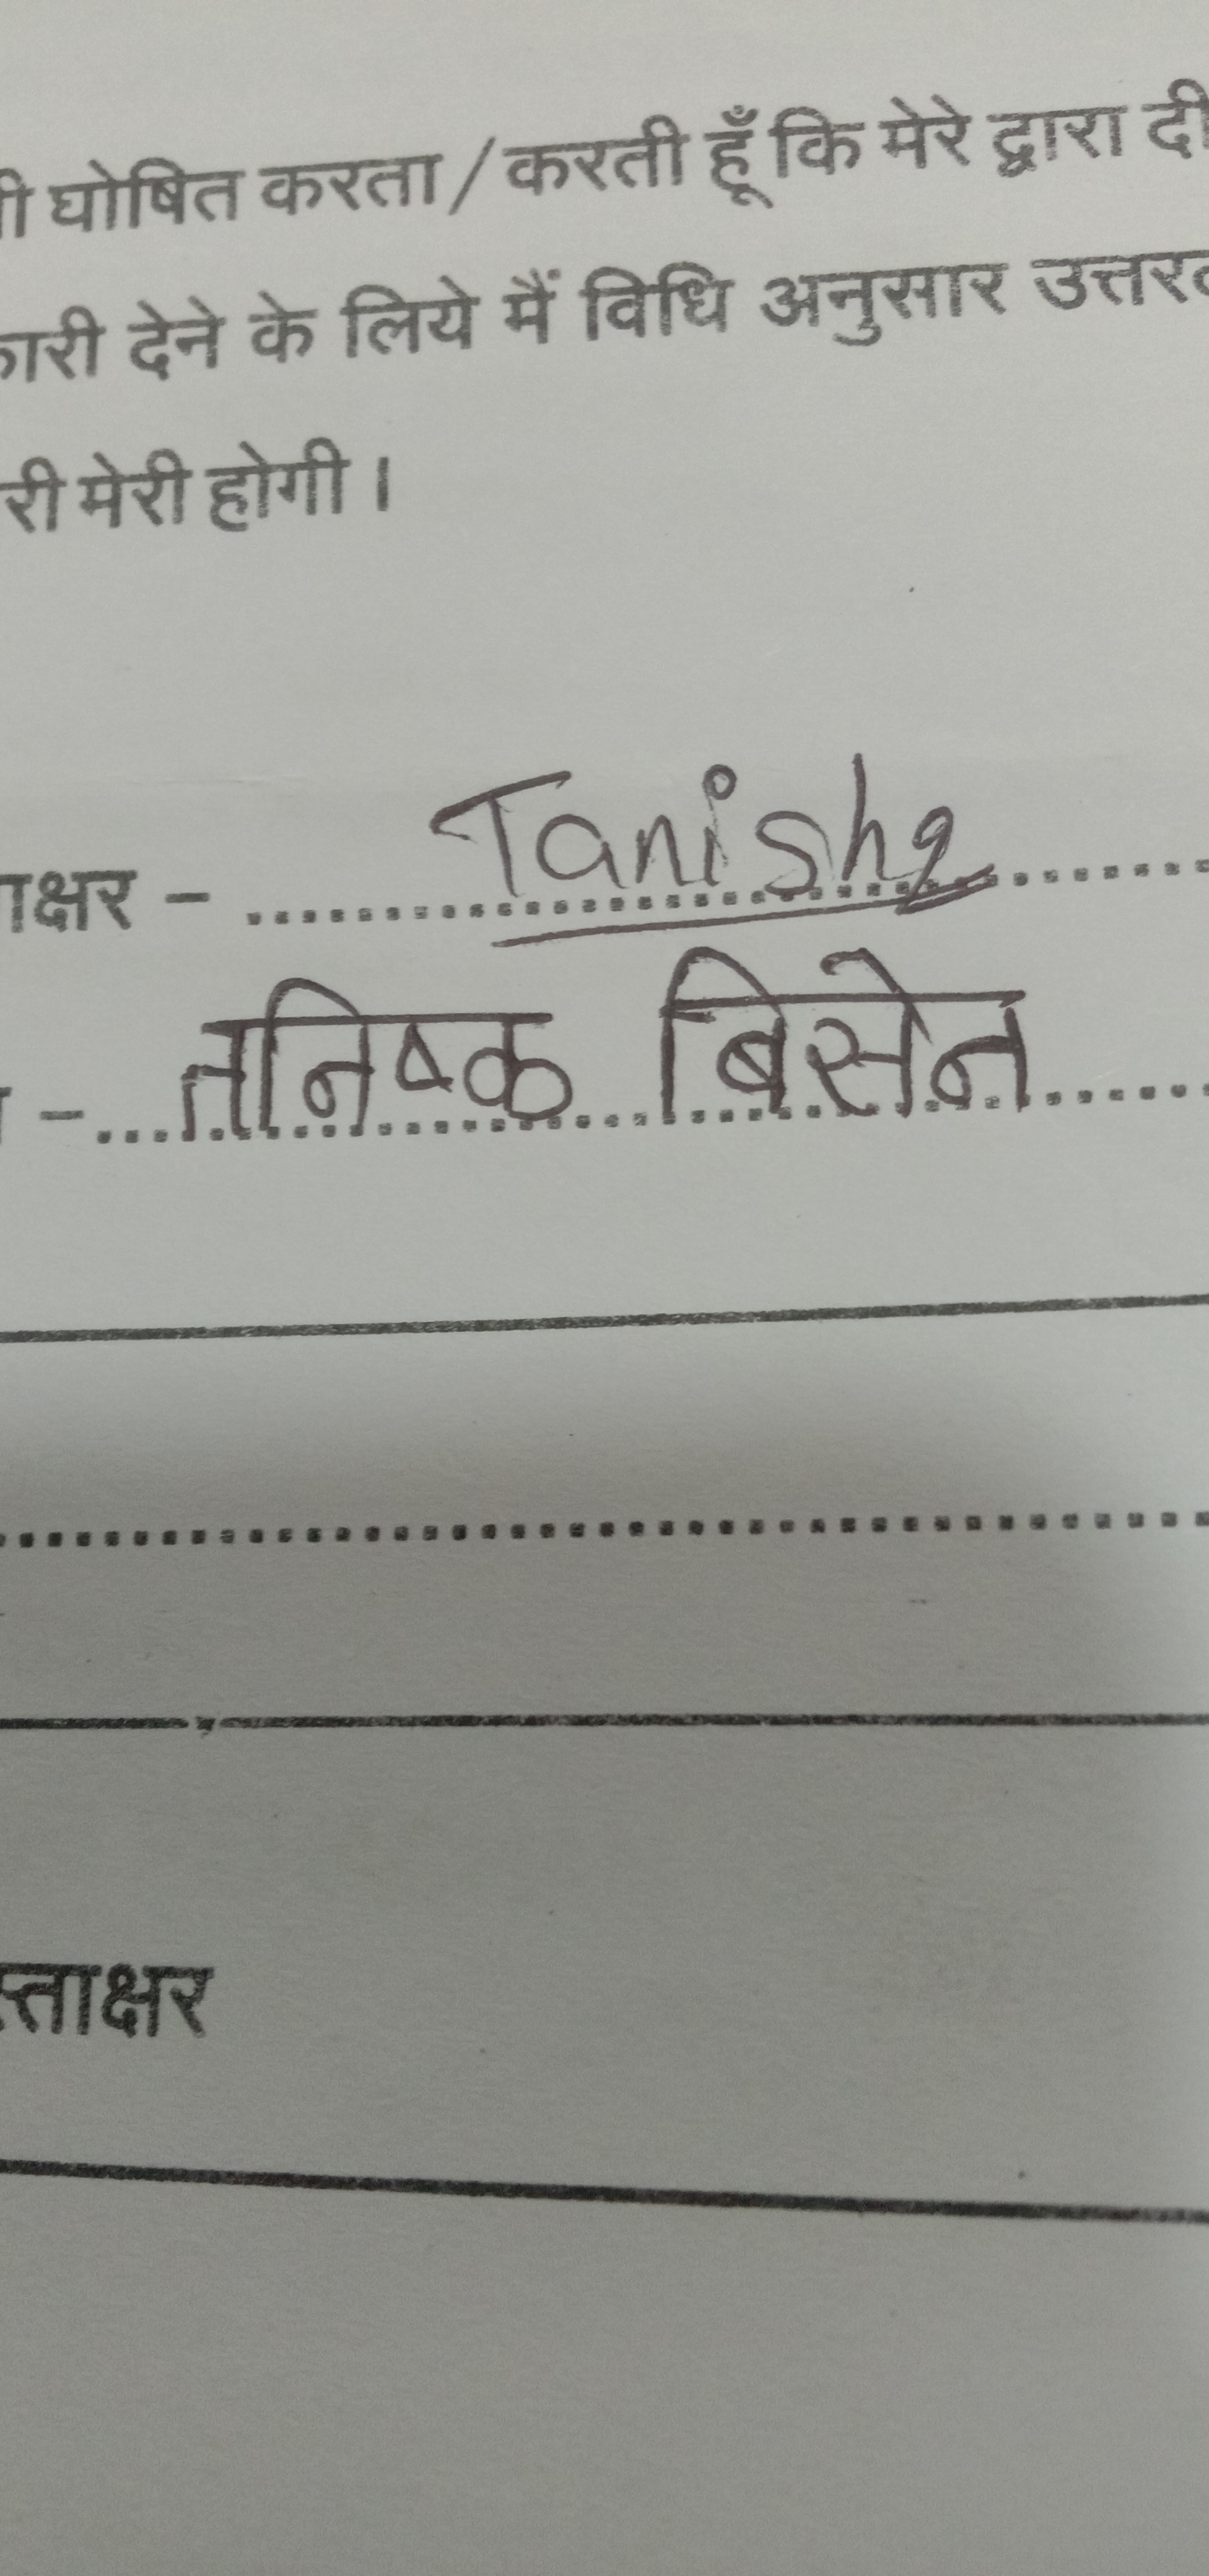 घोषित करता / करती हूँ कि मेरे द्वारा दी
कारी देने के लिये मैं विधि अनुसार उत्तरद
री मेरी होगी।
ाक्षर - Tanishq
- तनिष्क बिसेन
स्ताक्षर